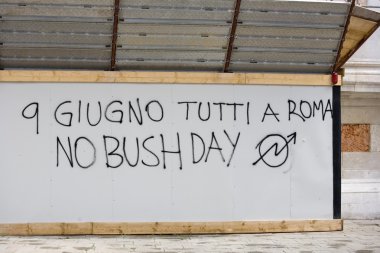 9 GIUGNO TUTTI A ROMA
NO BUSH DAY